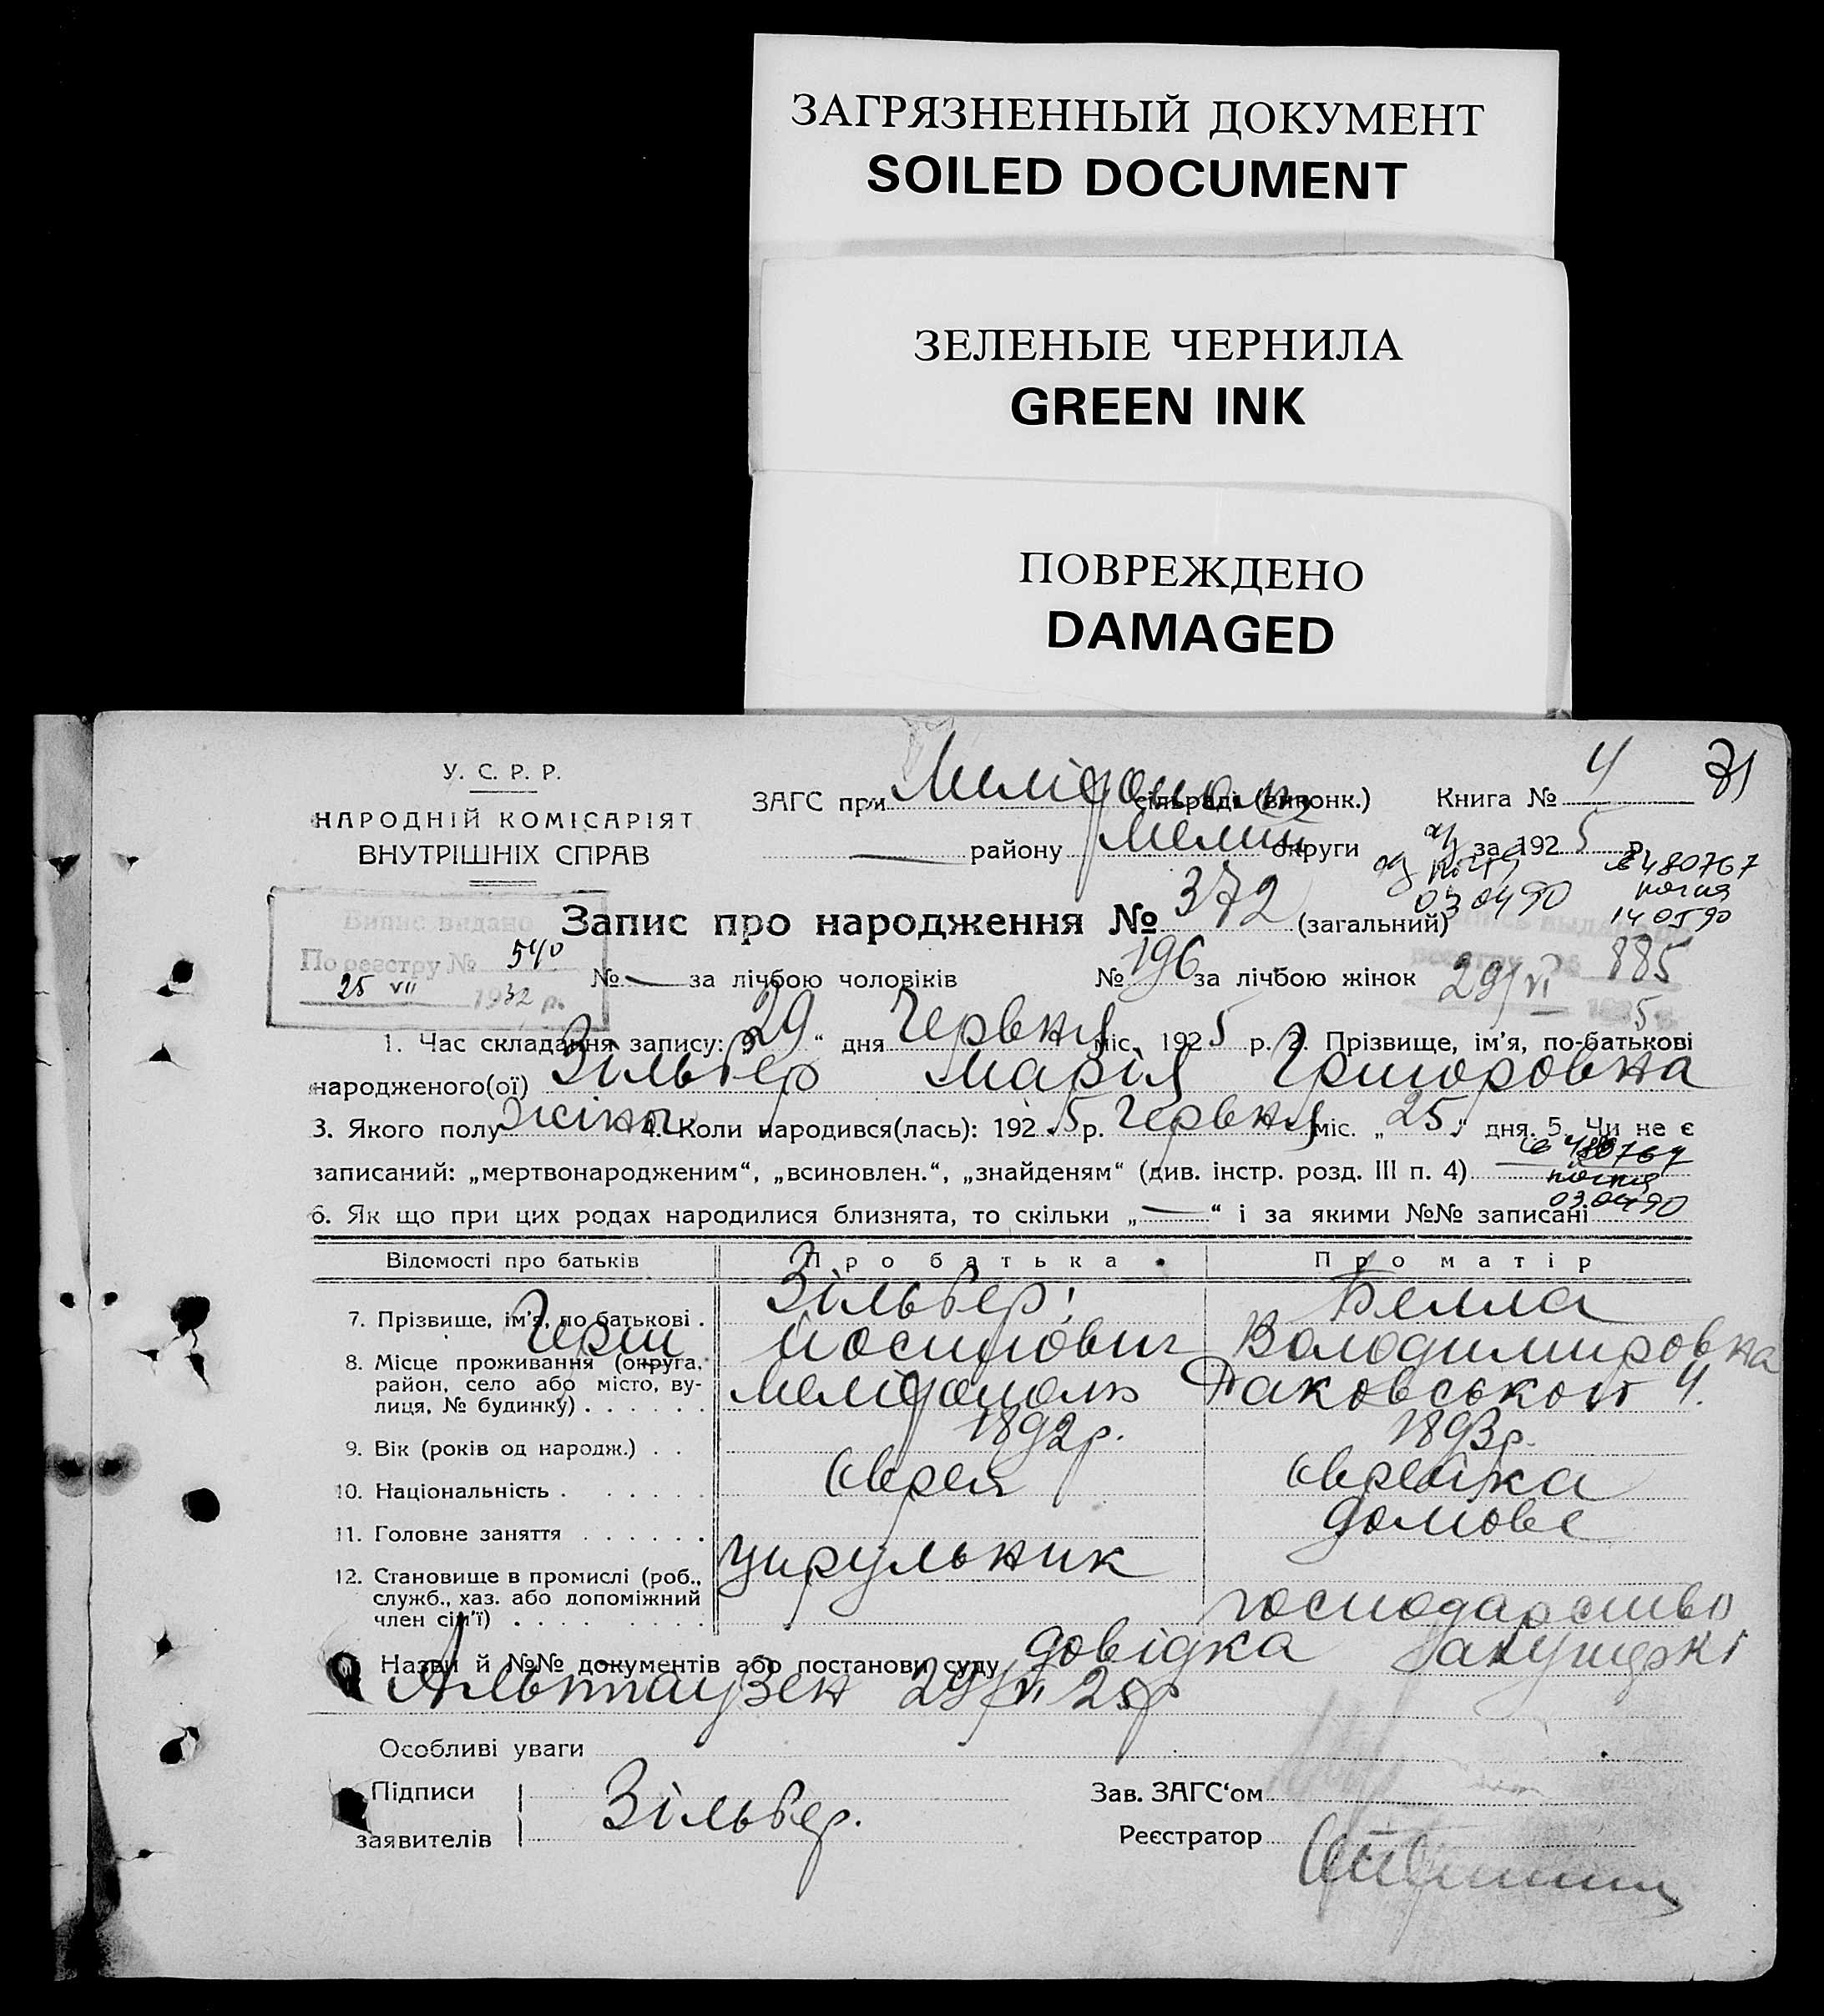 ЗАГРЯЗНЕННЫЙ ДОКУМЕНТ
SOILED DOCUMENT
ЗЕЛЕНЫЕ ЧЕРНИЛА
GREEN INK
ПОВРЕЖДЕНО
DAMAGED
У. С. Р. Р.
НАРОДНІЙ КОМІСАРІЯТ
ВНУТРІШНІХ СПРАВ
ЗАГС при Мелітополь сільраді (виконк.) Книга № 4 71
району Мелит округи за 1925 р.
6480767
030490 140590
Запис про народження № 372 (загальний)
Випис видано
По реєстру № 540
25 VII 1932 р.
№ — за лічбою чоловіків № 196 за лічбою жінок
885
29/VI 5
1. Час складання запису: „29“ дня Червня міс. 1925 р. 2. Прізвище, ім'я, по-батькові
народженого(ої) Зільбер Марія Григоровна
3. Якого полу жіноч 4. Коли народився(лась): 1925 р. Червня міс. „25“ дня. 5. Чи не є
записаний: „мертвонародженим“, „всиновлен.“, „знайденям“ (див. інстр. розд. III п. 4)
030490
6. Як що при цих родах народилися близнята, то скільки „—“ і за якими №№ записані
Відомості про батьків Про батька Про матір
7. Прізвище, ім'я, по батькові . Зільбер Герш Йосипович Белла Володимировна
8. Місце проживання (округа, район, село або місто, ву-
лиця, № будинку) . . . . . . Мелітополь Раковської 4.
9. Вік (років од народж.) . . 1892р. 1893р.
10. Національність . . . . . . Єврей Єврейка
11. Головне заняття . . . . . . Цирульник домове
12. Становище в промислі (роб.,
служб., хаз. або допоміжний
член сім'ї) . . . . . . . . . господарство
Назви й №№ документів або постанови суду довідка акушерки
Альтгаузен 29/VI 25р
Особливі уваги
Підписи
заявителів Зільбер.
Зав. ЗАГС'ом
Реєстратор